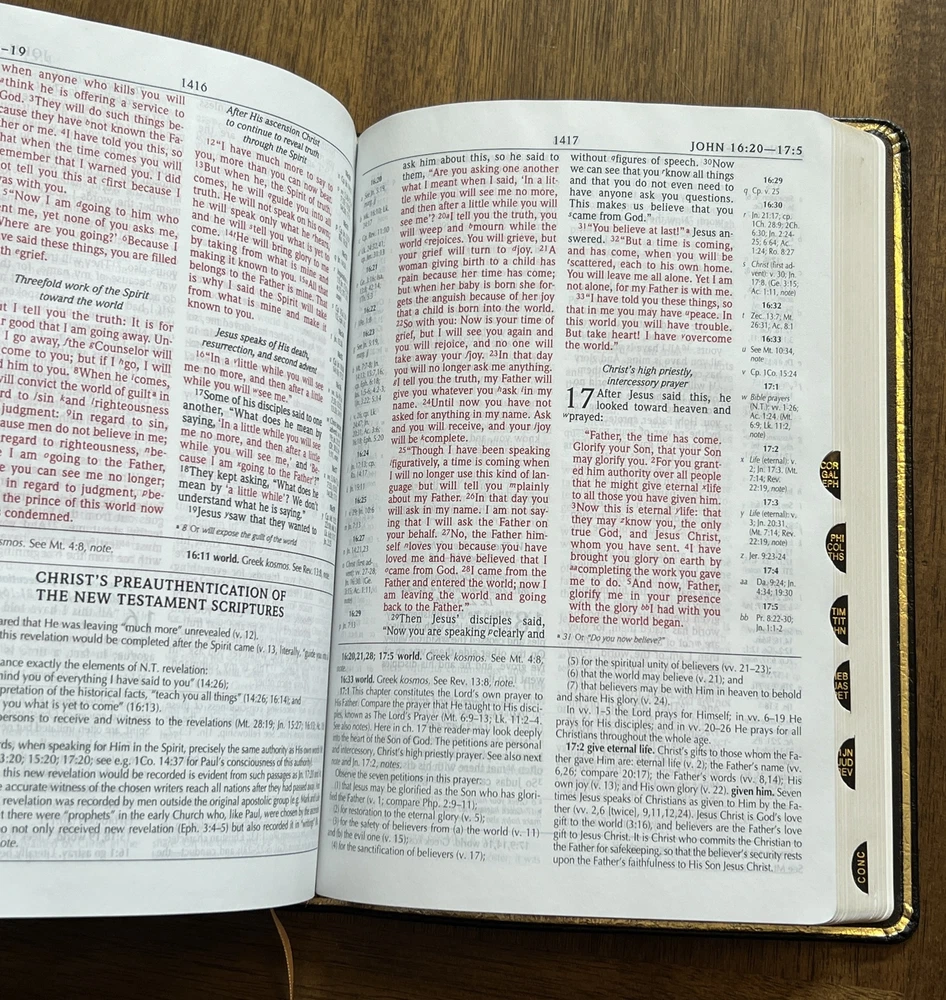 –19
1416
when anyone who kills you will
think he is offering a service to
God. 3They will do such things be-
cause they have not known the Fa-
ther or me. 4I have told you this, so
that when the time comes you will
remember that I warned you. I did
not tell you this at first because I
was with you.
5"Now I am going to him who
sent me, yet none of you asks me,
'Where are you going?' 6Because I
have said these things, you are filled
with grief.
Threefold work of the Spirit
toward the world
But I tell you the truth: It is for
your good that I am going away. Un-
I go away, the Counselor will
come to you; but if I go, I will
him to you. 8When he comes,
will convict the world of guilt in
regard to sin and righteousness
judgment: 9in regard to sin,
because men do not believe in me;
regard to righteousness, be-
I am going to the Father,
you can see me no longer;
in regard to judgment, be-
the prince of this world now
condemned.
After His ascension Christ
to continue to reveal truth
through the Spirit
12"I have much more to say to
you, more than you can now bear.
13But when he, the Spirit of truth,
comes, he will guide you into all
truth. He will not speak on his own;
he will speak only what he hears,
and he will tell you what is yet to
come. 14He will bring glory to me
by taking from what is mine and
making it known to you. 15All that
belongs to the Father is mine. That
is why I said the Spirit will take
from what is mine and make it
known to you.
Jesus speaks of His death,
resurrection, and second advent
16"In a little while you will see
me no more, and then after a little
while you will see me."
17Some of his disciples said to one
another, "What does he mean by
saying, 'In a little while you will see
me no more, and then after a little
while you will see me,' and 'Be-
cause I am going to the Father'?"
18They kept asking, "What does he
mean by 'a little while'? We don't
understand what he is saying."
19Jesus saw that they wanted to
* 8 Or will expose the guilt of the world
kosmos. See Mt. 4:8, note.
16:11 world. Greek kosmos. See Rev. 13:8, note.
CHRIST'S PREAUTHENTICATION OF
THE NEW TESTAMENT SCRIPTURES
ared that He was leaving "much more" unrevealed (v. 12).
this revelation would be completed after the Spirit came (v. 13, literally, "guide you
ance exactly the elements of N.T. revelation:
mind you of everything I have said to you" (14:26);
pretation of the historical facts, "teach you all things" (14:26; 16:14); and
you what is yet to come" (16:13).
persons to receive and witness to the revelations (Mt. 28:19; Jn. 15:27;
rds, when speaking for Him in the Spirit, precisely the same authority as His own
3:20; 15:20; 17:20; see e.g. 1Co. 14:37 for Paul's consciousness of this authority)
this new revelation would be recorded is evident from such passages as Jn. 17:20
e accurate witness of the chosen writers reach all nations after they had passed
revelation was recorded by men outside the original apostolic group (e.g. Mark and
t there were "prophets" in the early Church who, like Paul, were chosen by the
o not only received new revelation (Eph. 3:4–5) but also recorded it in "writing"
note.
1417
JOHN 16:20—17:5
ask him about this, so he said to
them, "Are you asking one another
what I meant when I said, 'In a lit-
tle while you will see me no more,
and then after a little while you will
see me'? 20I tell you the truth, you
will weep and hmourn while the
world irejoices. You will grieve, but
your grief will turn to joy. 21A
woman giving birth to a child has
pain because her time has come;
but when her baby is born she for-
gets the anguish because of her joy
that a child is born into the world.
22So with you: Now is your time of
grief, but I will see you again and
you will rejoice, and no one will
take away your joy. 23In that day
you will no longer ask me anything.
I tell you the truth, my Father will
give you whatever you ask in my
name. 24Until now you have not
asked for anything in my name. Ask
and you will receive, and your joy
will be complete.
25"Though I have been speaking
figuratively, a time is coming when
I will no longer use this kind of lan-
guage but will tell you mplainly
about my Father. 26In that day you
will ask in my name. I am not say-
ing that I will ask the Father on
your behalf. 27No, the Father him-
self loves you because you have
loved me and have believed that I
came from God. 28I came from the
Father and entered the world; now I
am leaving the world and going
back to the Father."
29Then Jesus' disciples said,
"Now you are speaking clearly and
without qfigures of speech. 30Now
we can see that you rknow all things
and that you do not even need to
have anyone ask you questions.
This makes us believe that you
scame from God."
31"You believe at last!"* Jesus an-
swered. 32"But a time is coming,
and has come, when you will be
tscattered, each to his own home.
You will leave me all alone. Yet I am
not alone, for my Father is with me.
33"I have told you these things, so
that in me you may have upeace. In
this world you will have trouble.
But take heart! I have vovercome
the world."
Christ's high priestly,
intercessory prayer
17 After Jesus said this, he
looked toward heaven and
wprayed:
"Father, the time has come.
Glorify your Son, that your Son
may glorify you. 2For you grant-
ed him authority over all people
that he might give eternal xlife
to all those you have given him.
3Now this is eternal ylife: that
they may zknow you, the only
true God, and Jesus Christ,
whom you have sent. 4I have
brought you glory on earth by
aacompleting the work you gave
me to do. 5And now, Father,
glorify me in your presence
with the glory bbI had with you
before the world began.
* 31 Or "Do you now believe?"
16:29
q Cp. v. 25
16:30
r Jn. 21:17; cp.
1Ch. 28:9; 2Ch.
6:30; Jn. 2:24-
25; 6:64; Ac.
1:24; Ro. 8:27
s Christ (first ad-
vent): v. 30; Jn.
17:8. (Ge. 3:15;
Ac. 1:11, note)
16:32
t Zec. 13:7; Mt.
26:31; Ac. 8:1
16:33
u See Mt. 10:34,
note
v Cp. 1Co. 15:24
17:1
w Bible prayers
(N.T.): vv. 1-26;
Ac. 1:24. (Mt.
6:9; Lk. 11:2,
note)
17:2
x Life (eternal): v.
2; Jn. 17:3. (Mt.
7:14; Rev.
22:19, note)
17:3
y Life (eternal): v.
3; Jn. 20:31.
(Mt. 7:14; Rev.
22:19, note)
z Jer. 9:23-24
17:4
aa Da. 9:24; Jn.
4:34; 19:30
17:5
bb Pr. 8:22-30;
Jn. 1:1-2
16:20,21,28; 17:5 world. Greek kosmos. See Mt. 4:8,
note.
16:33 world. Greek kosmos. See Rev. 13:8, note.
17:1 This chapter constitutes the Lord's own prayer to
His Father. Compare the prayer that He taught to His disci-
ples, known as The Lord's Prayer (Mt. 6:9–13; Lk. 11:2–4.
See also notes). Here in ch. 17 the reader may look deeply
into the heart of the Son of God. The petitions are personal
and intercessory, Christ's high priestly prayer. See also next
note and Jn. 17:2, notes.
Observe the seven petitions in this prayer:
(1) that Jesus may be glorified as the Son who has glori-
fied the Father (v. 1; compare Php. 2:9–11);
(2) for restoration to the eternal glory (v. 5);
(3) for the safety of believers from (a) the world (v. 11)
and the evil one (v. 15);
(4) for the sanctification of believers (v. 17);
(5) for the spiritual unity of believers (vv. 21–23);
(6) that the world may believe (v. 21); and
(7) that believers may be with Him in heaven to behold
and share His glory (v. 24).
In vv. 1–5 the Lord prays for Himself; in vv. 6–19 He
prays for His disciples; and in vv. 20–26 He prays for all
Christians throughout the whole age.
17:2 give eternal life. Christ's gifts to those whom the Fa-
ther gave Him are: eternal life (v. 2); the Father's name (vv.
6,26; compare 20:17); the Father's words (vv. 8,14); His
own joy (v. 13); and His own glory (v. 22). given him. Seven
times Jesus speaks of Christians as given to Him by the Fa-
ther (vv. 2,6 [twice], 9,11,12,24). Jesus Christ is God's love
gift to the world (3:16), and believers are the Father's love
gift to Jesus Christ. It is Christ who commits the Christian to
the Father for safekeeping, so that the believer's security rests
upon the Father's faithfulness to His Son Jesus Christ.
COR
GAL
EPH
PHI
COL
THS
TIM
TIT
HN
HEB
JAS
PET
JN
JUD
REV
CONC